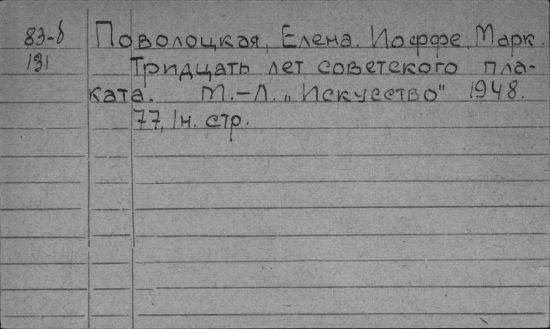 83-б Поволоцкая, Елена. Иоффе, Марк.
131 Тридцать лет советского пла-
ката. М.-Л. „Искусство" 1948.
77, 1н. стр.